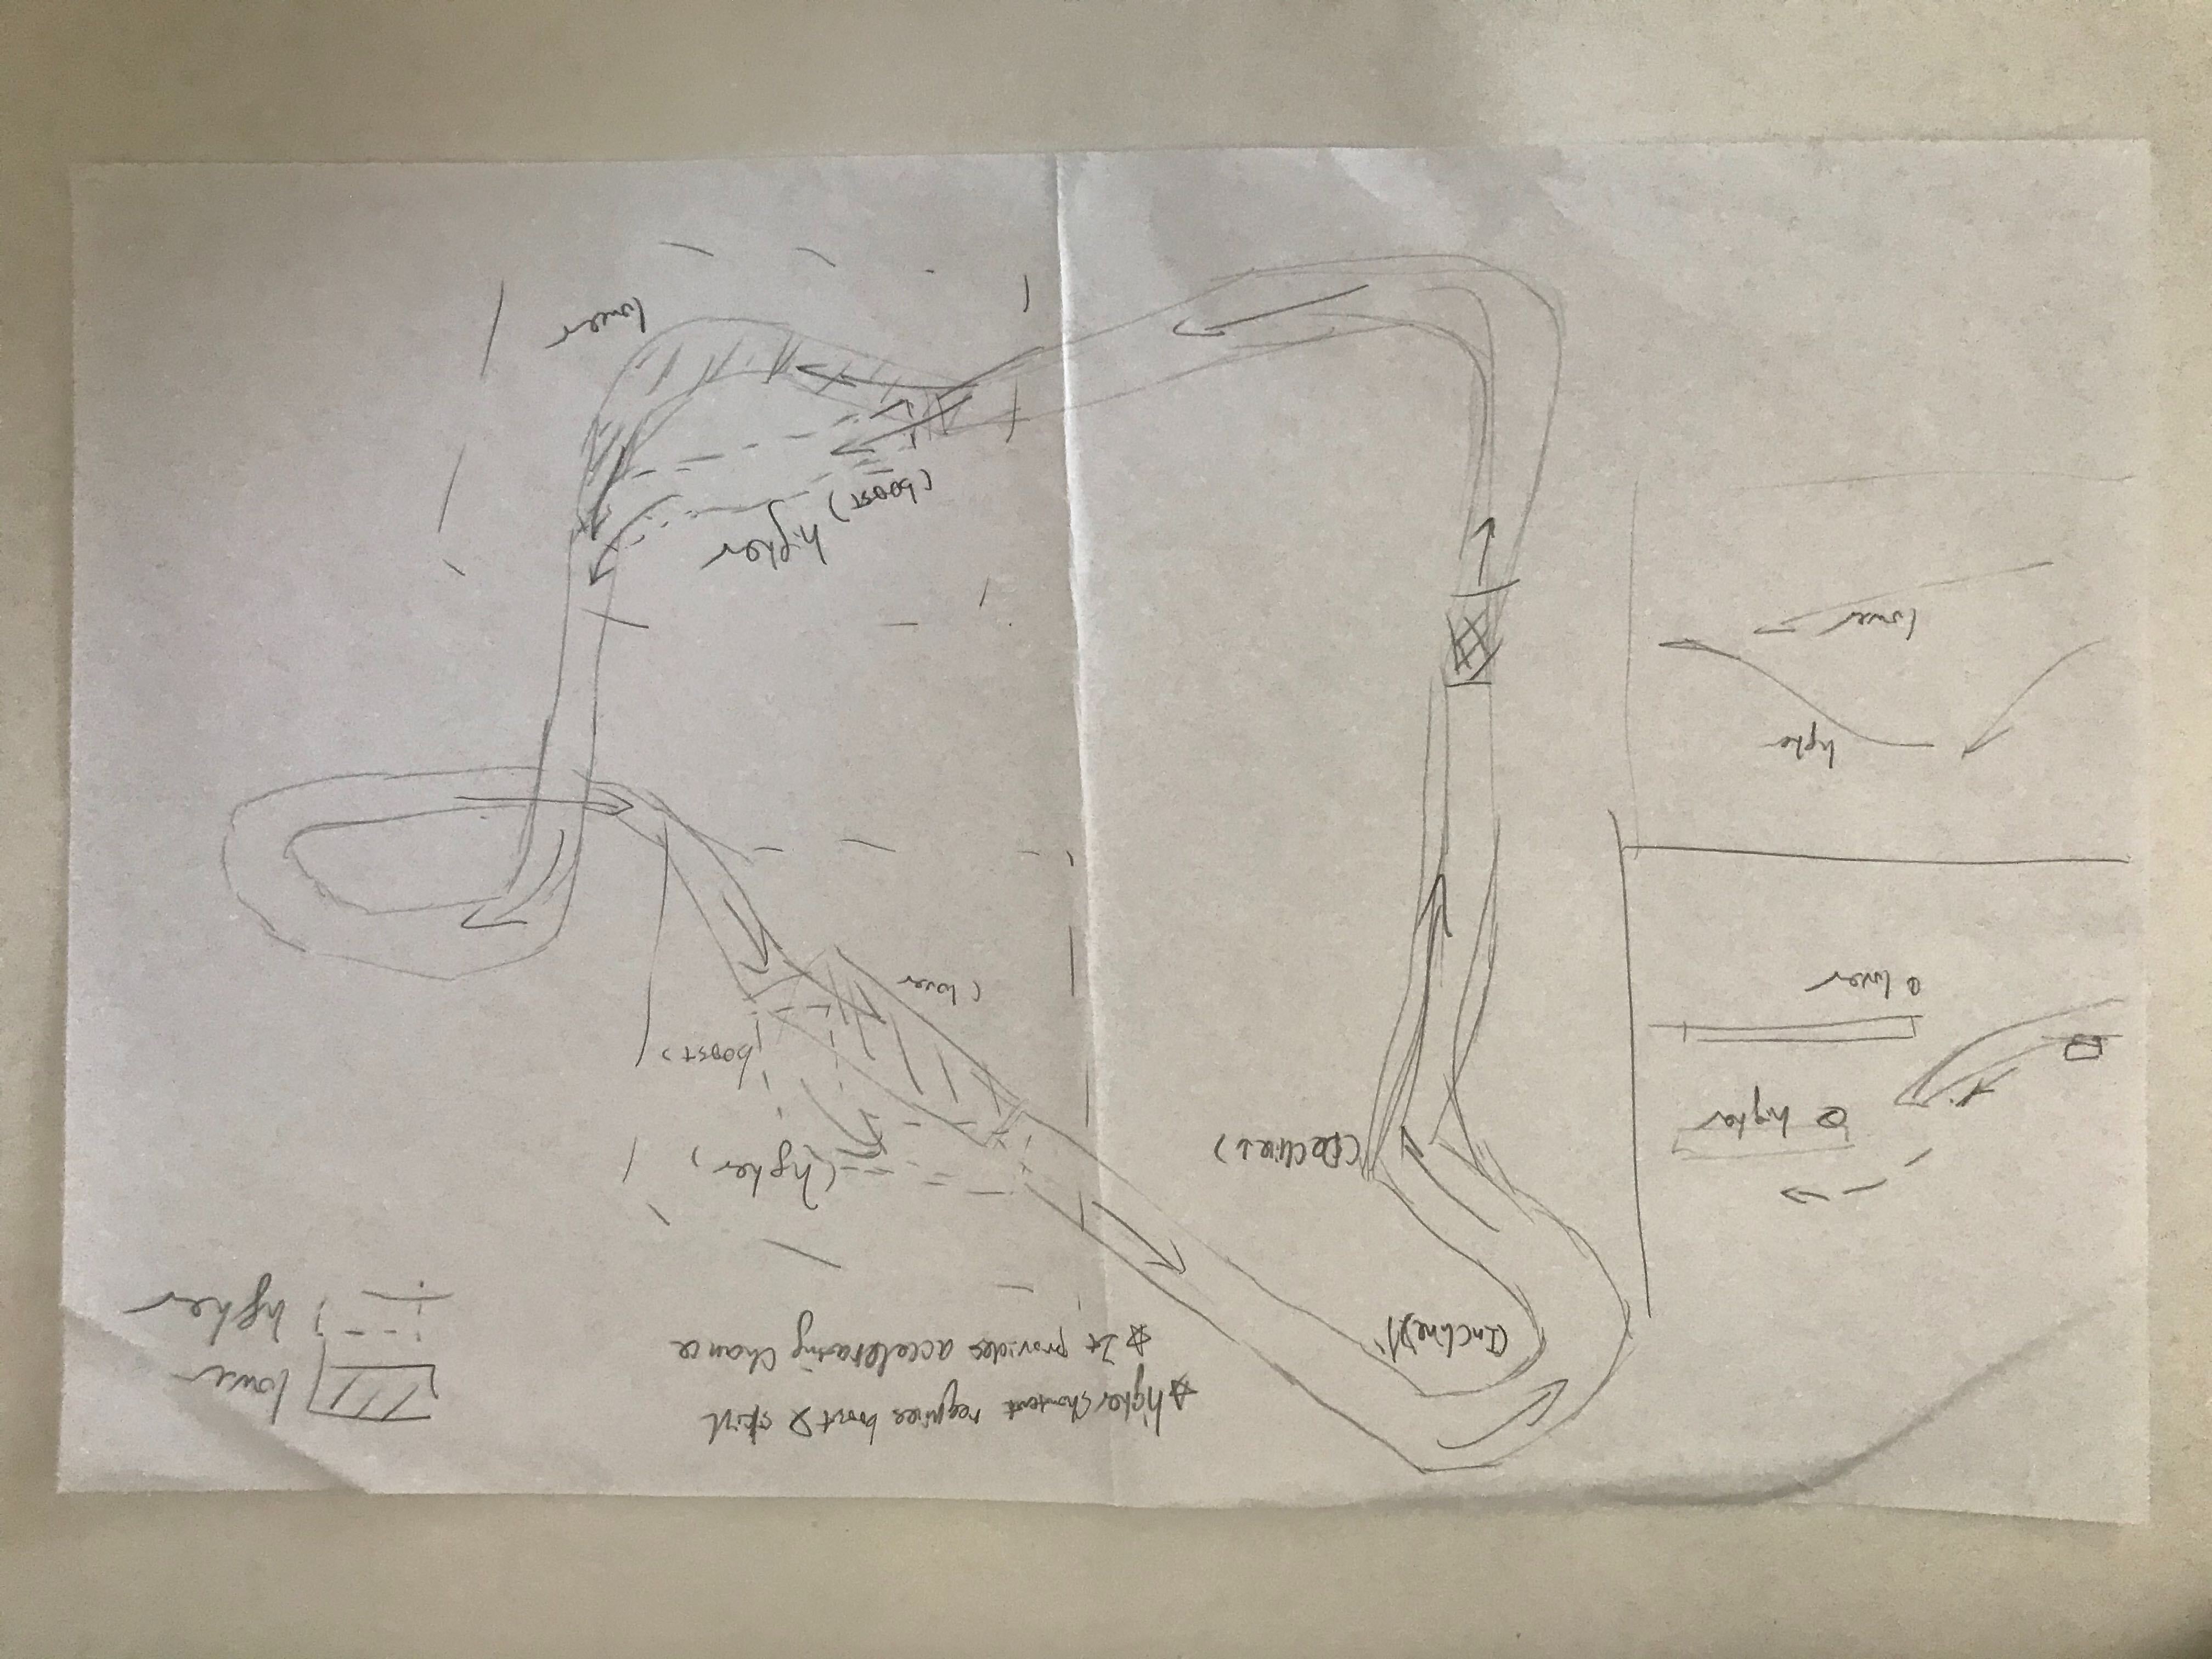 ☆ higher shortcut requires boost & skill
☆ It provides accelerating chance
lower
higher
(Incline↑)
(Decline↓)
(higher,
boost)
(lower
② higher
① lower
higher
lower
(boost) higher
lower